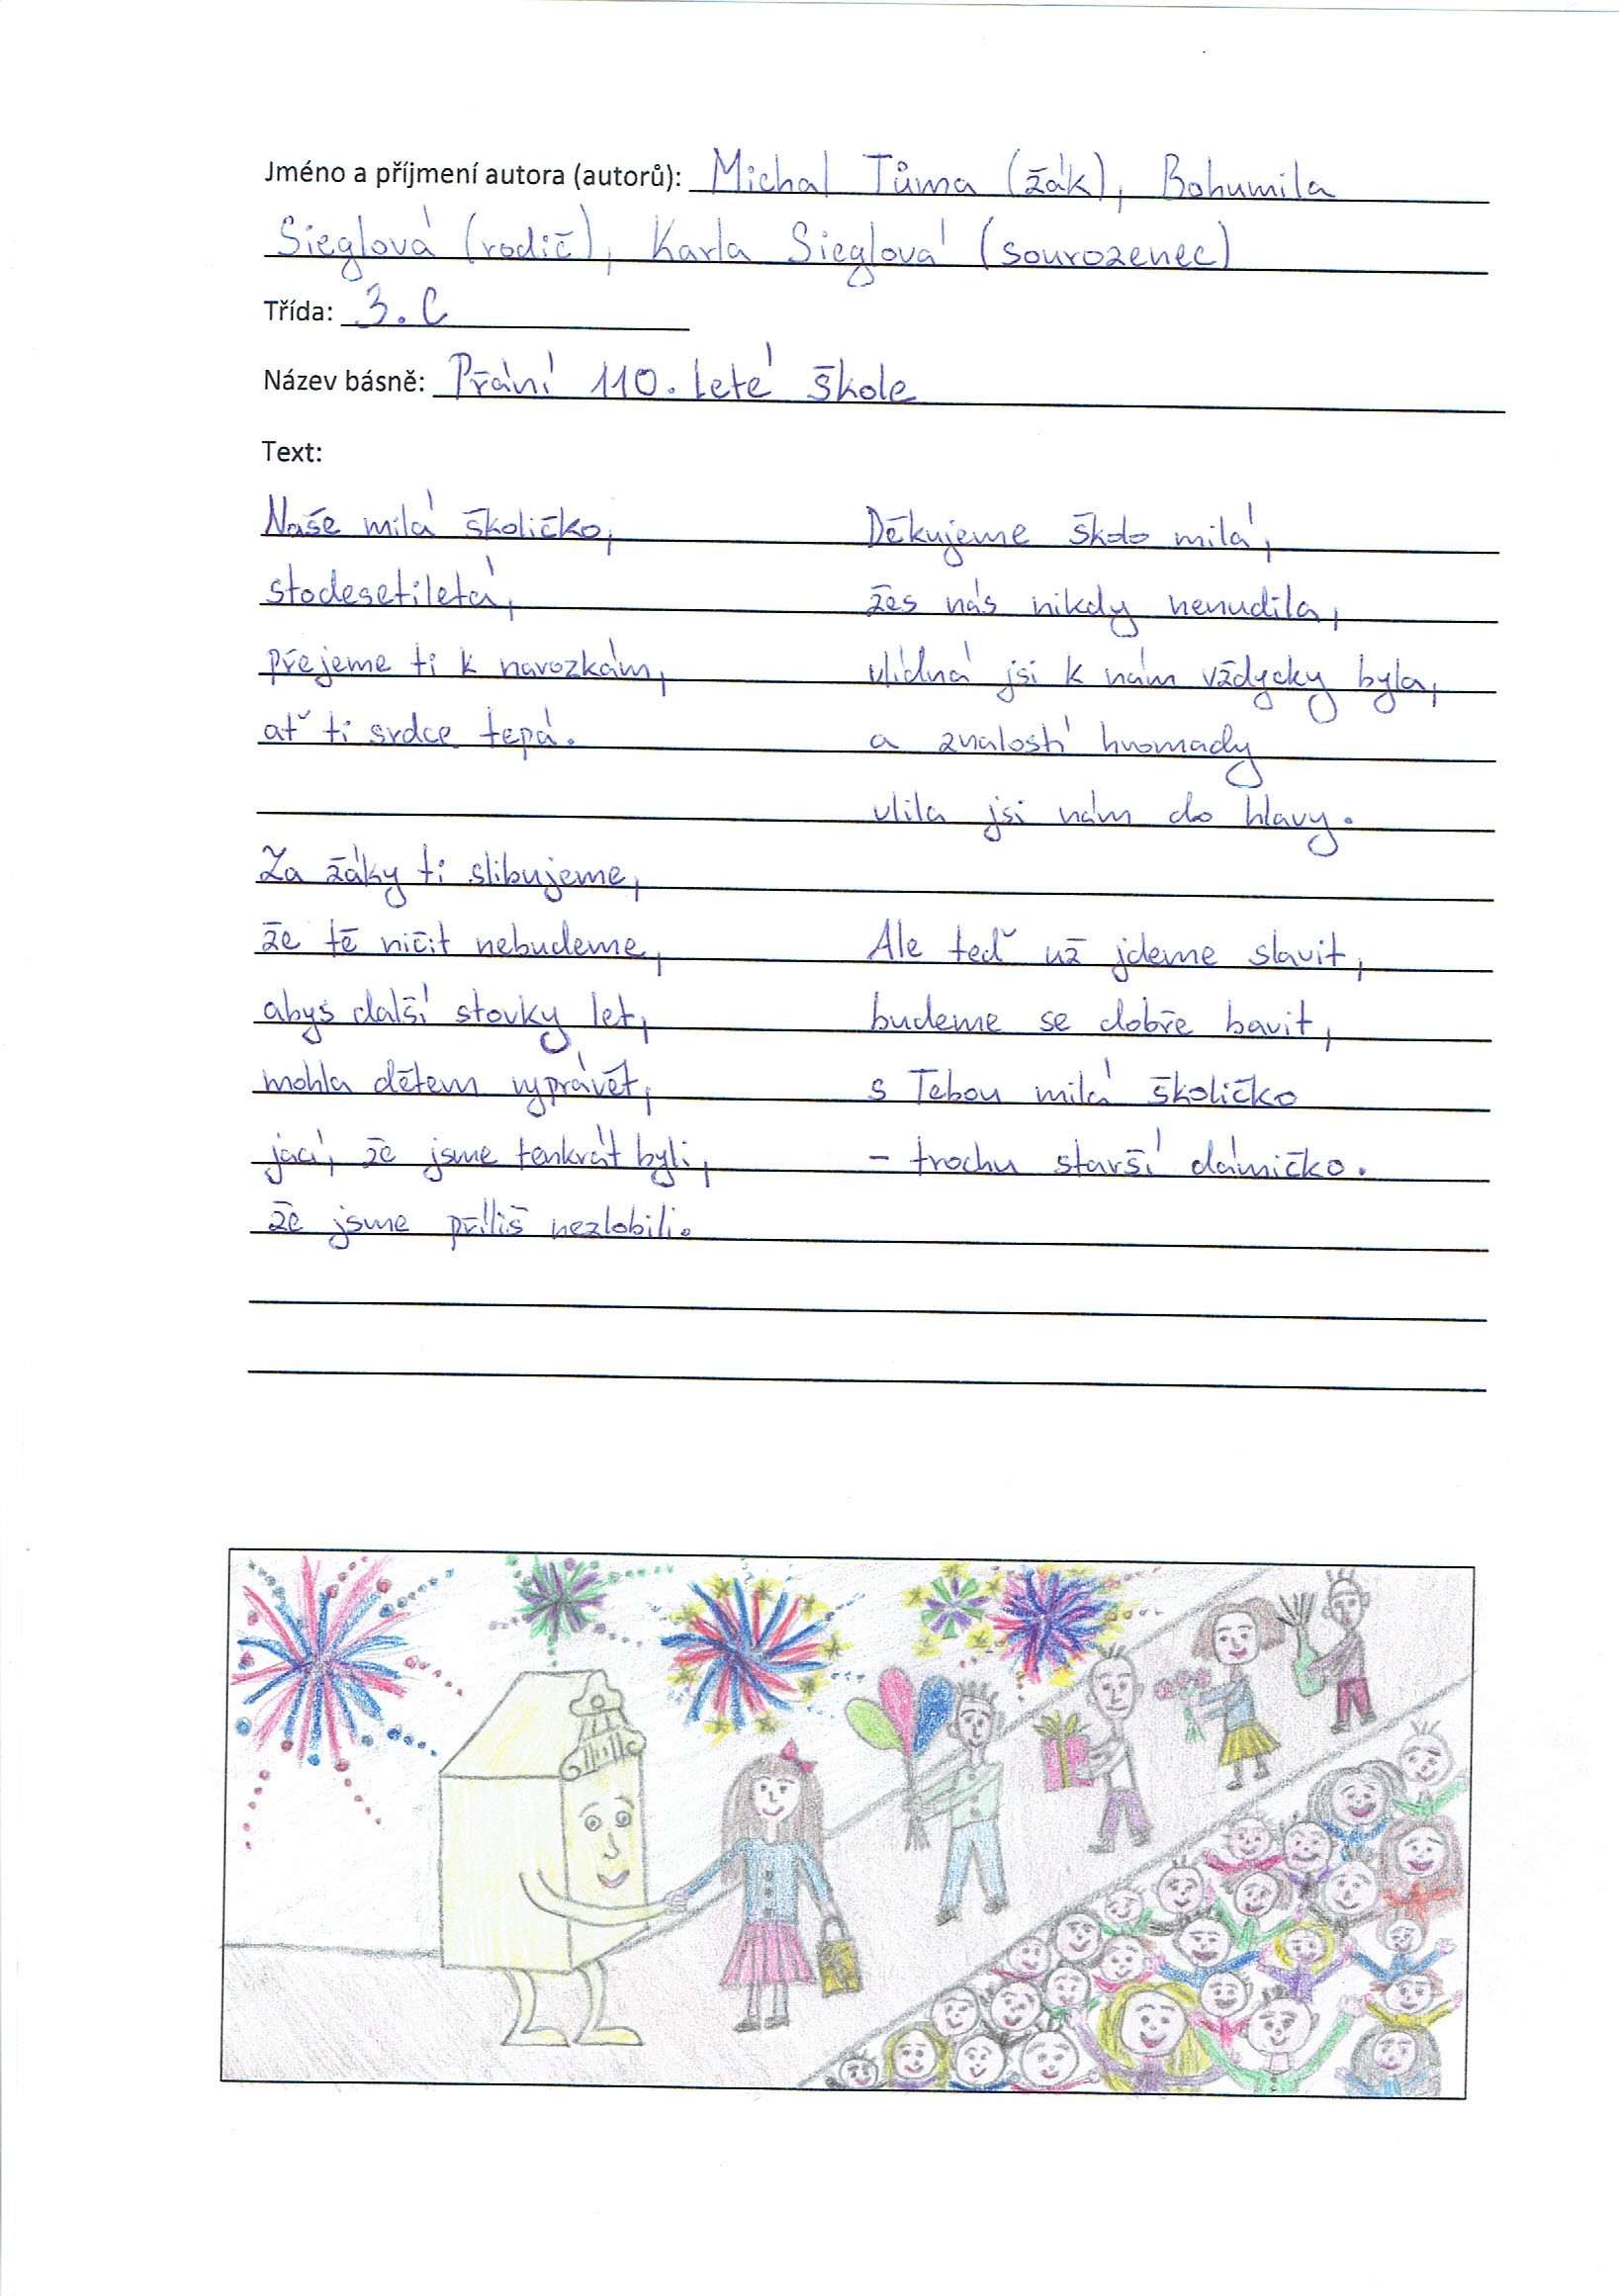 Jméno a příjmení autora (autorů): Michal Tůma (žák), Bohumila
Sieglová (rodič), Karla Sieglová (sourozenec)
Třída: 3. C
Název básně: Přání 110. leté škole
Text:
Naše milá školičko,
stodesetiletá,
přejeme ti k narozkám,
ať ti srdce tepá.
Za žáky ti slibujeme,
že tě ničit nebudeme,
abys další stovky let,
mohla dětem vyprávět,
jací, že jsme tenkrát byli,
že jsme příliš nezlobili.
Děkujeme školo milá,
žes nás nikdy nenudila,
vlídná jsi k nám vždycky byla,
a znalostí hromady
vlila jsi nám do hlavy.
Ale teď už jdeme slavit,
budeme se dobře bavit,
s Tebou milá školičko
- trochu starší dámičko.